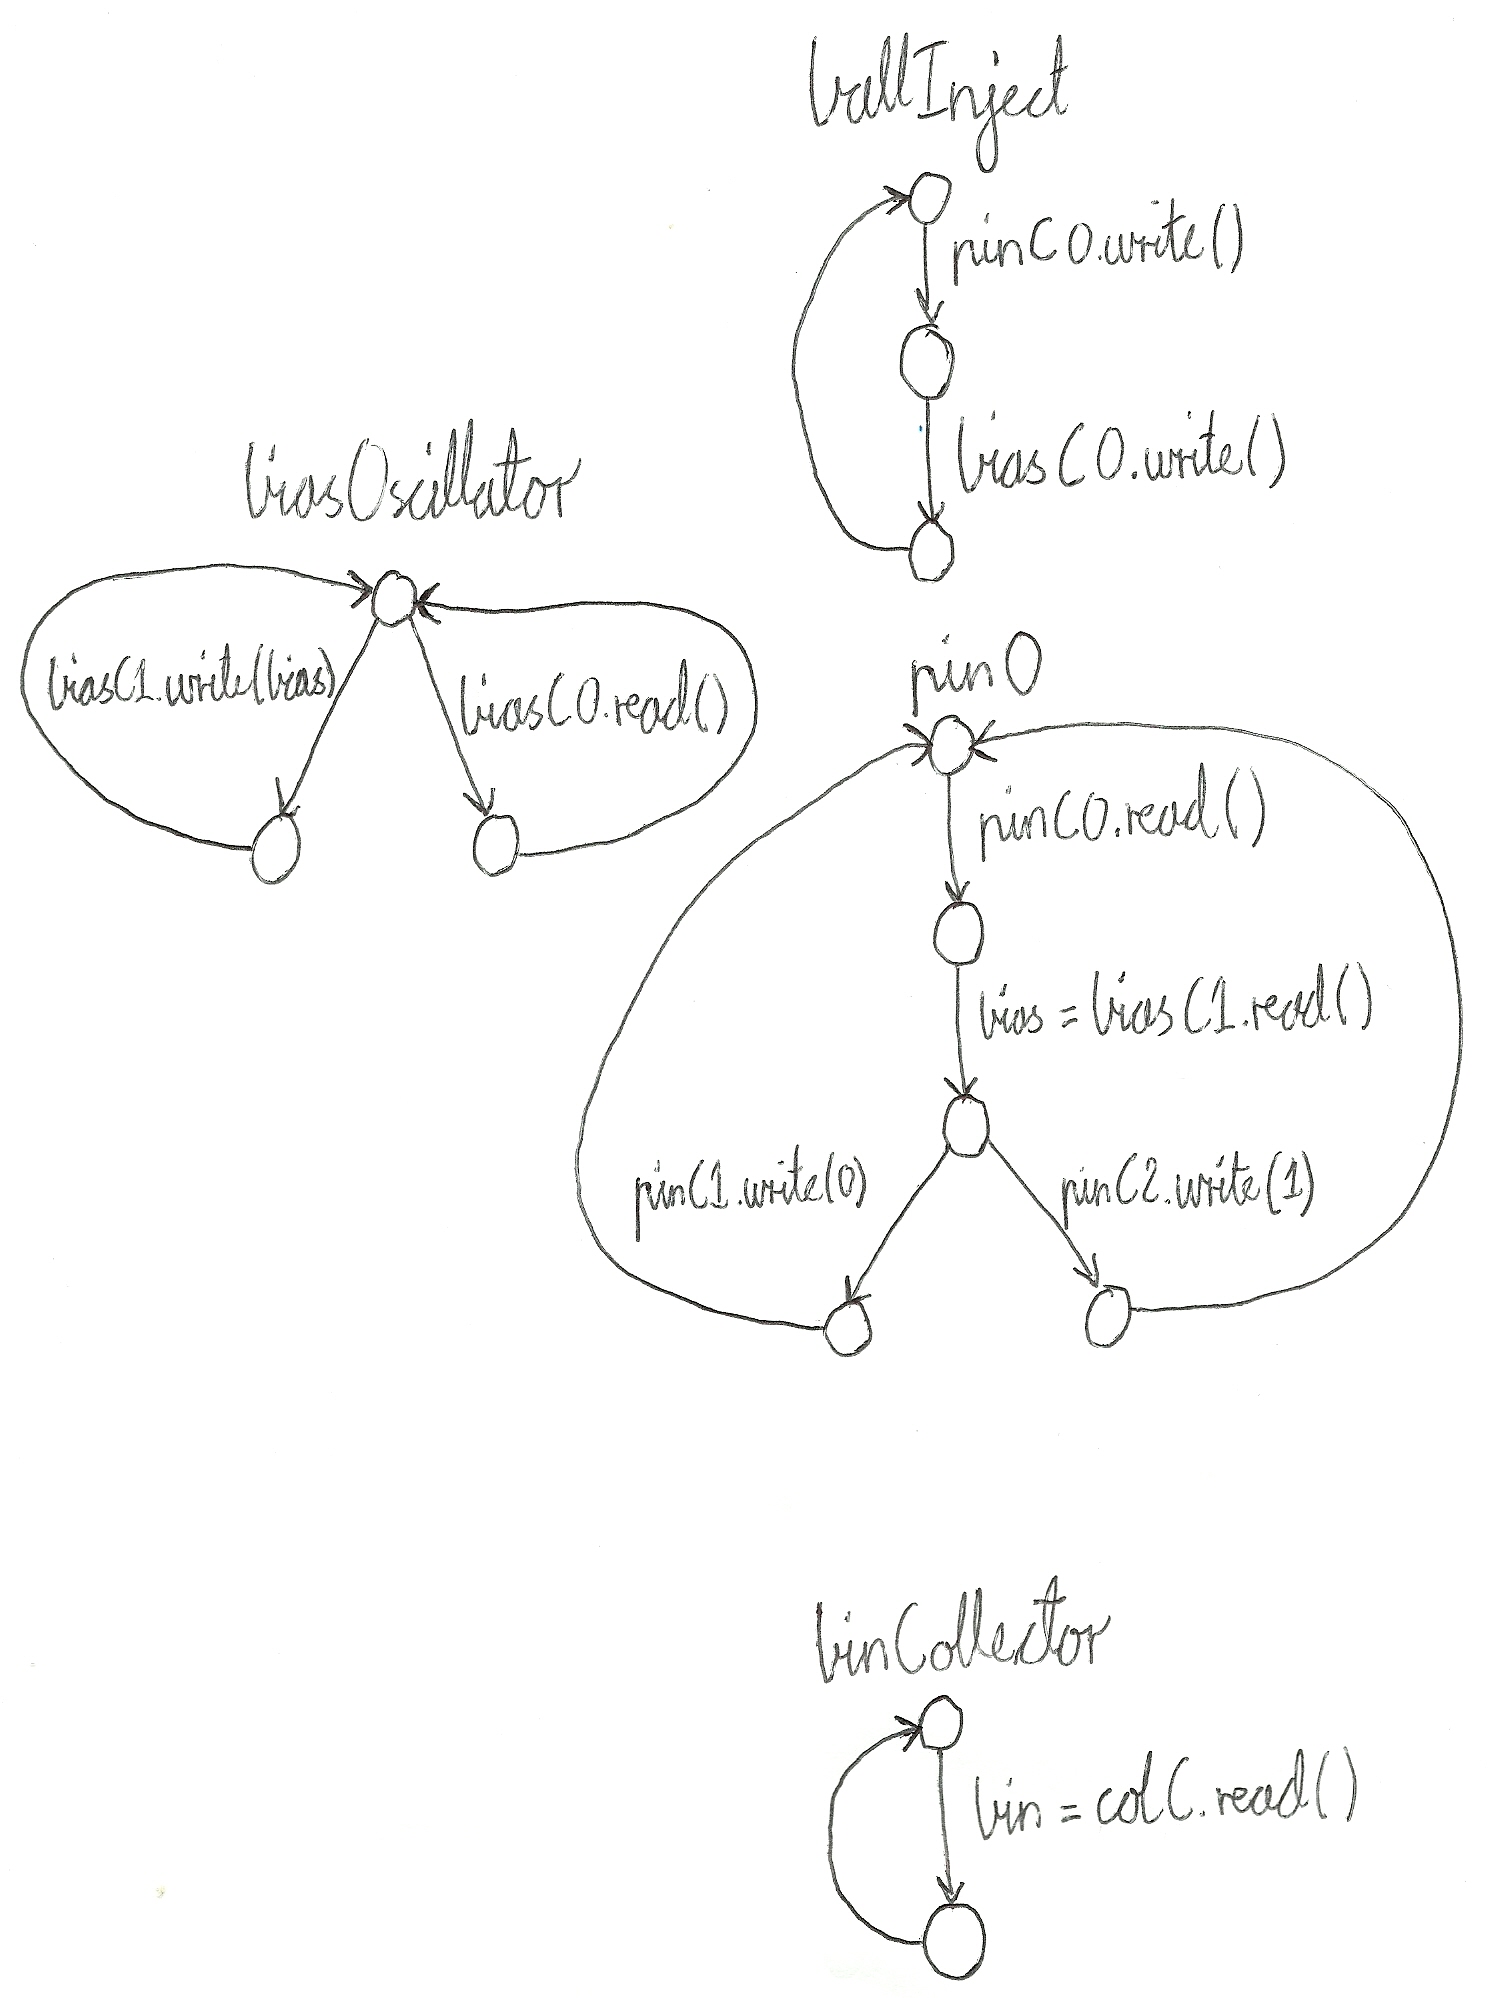 ballInject
pinC0.write()
biasC0.write()
biasOscillator
biasC1.write(bias)
biasC0.read()
pin0
pinC0.read()
bias = biasC1.read()
pinC1.write(0)
pinC2.write(1)
binCollector
bin = colC.read()